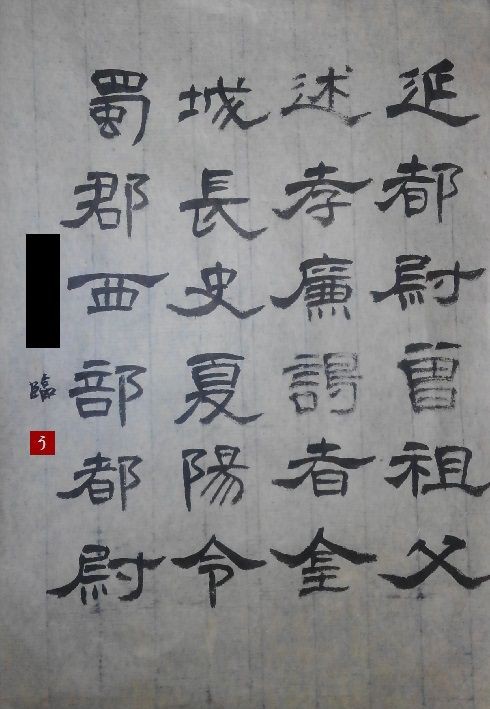 延都尉曽祖父
述孝廉謁者金
城長史夏陽令
蜀郡西部都尉
臨
う